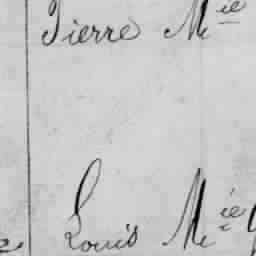 Pierre M^ie
Louis M^ie